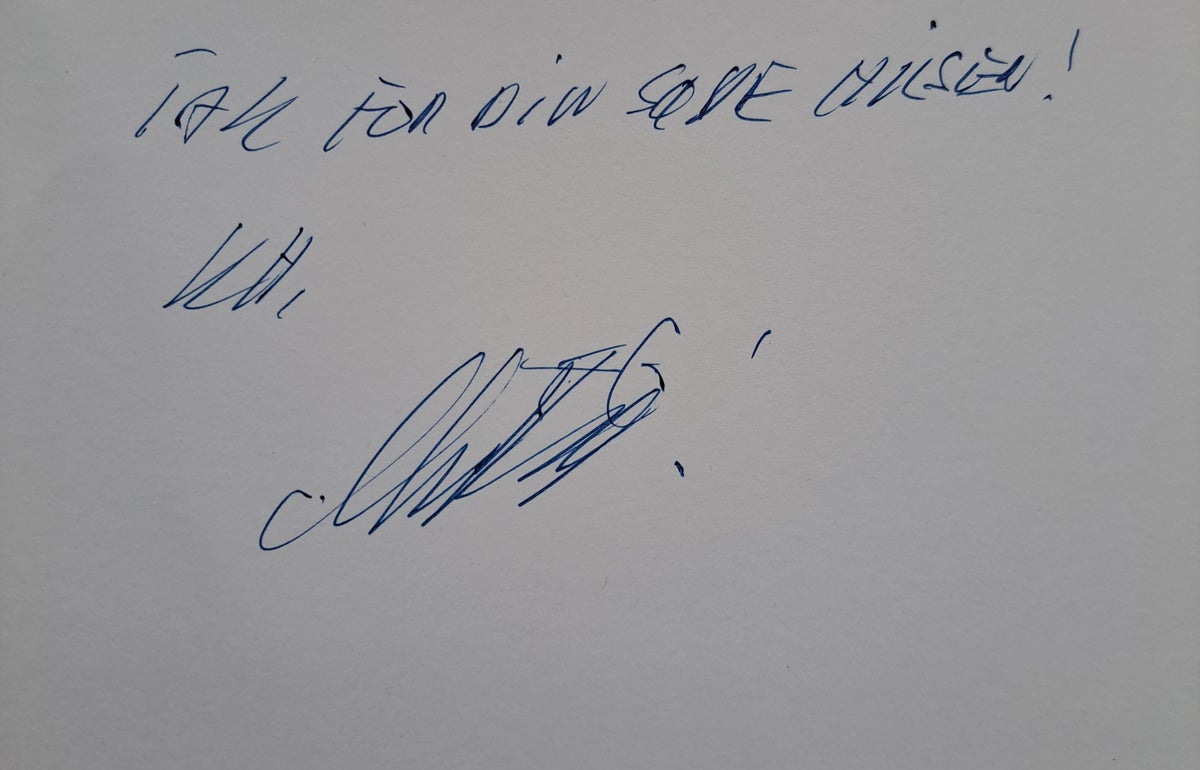 TAK FOR DIN SØDE HILSEN!
KH,